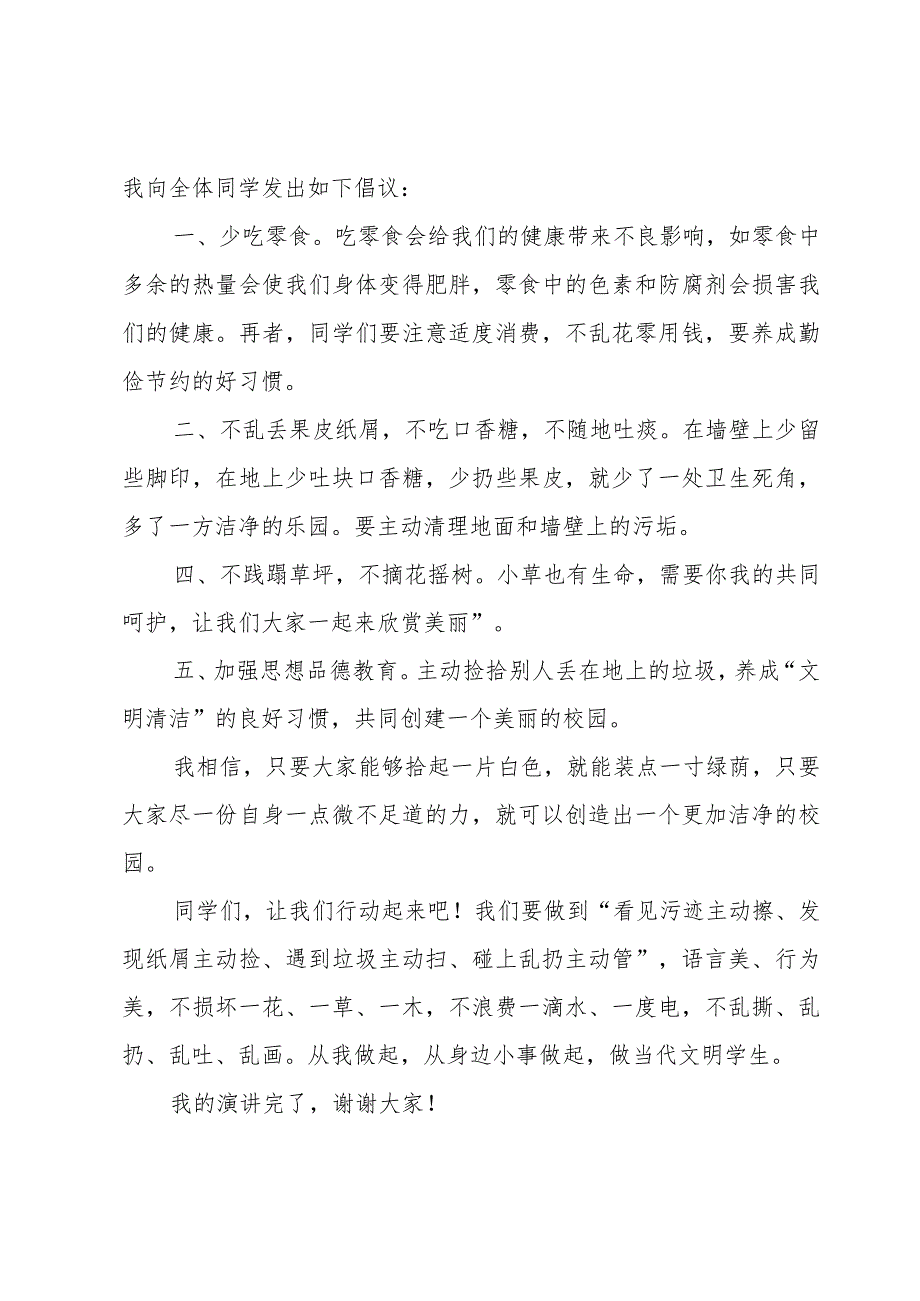 我向全体同学发出如下倡议：
一、少吃零食。吃零食会给我们的健康带来不良影响，如零食中
多余的热量会使我们身体变得肥胖，零食中的色素和防腐剂会损害我
们的健康。再者，同学们要注意适度消费，不乱花零用钱，要养成勤
俭节约的好习惯。
二、不乱丢果皮纸屑，不吃口香糖，不随地吐痰。在墙壁上少留
些脚印，在地上少吐块口香糖，少扔些果皮，就少了一处卫生死角，
多了一方洁净的乐园。要主动清理地面和墙壁上的污垢。
四、不践蹋草坪，不摘花摇树。小草也有生命，需要你我的共同
呵护，让我们大家一起来欣赏美丽”。
五、加强思想品德教育。主动捡拾别人丢在地上的垃圾，养成“文
明清洁”的良好习惯，共同创建一个美丽的校园。
我相信，只要大家能够拾起一片白色，就能装点一寸绿荫，只要
大家尽一份自身一点微不足道的力，就可以创造出一个更加洁净的校
园。
同学们，让我们行动起来吧！我们要做到“看见污迹主动擦、发
现纸屑主动捡、遇到垃圾主动扫、碰上乱扔主动管”，语言美、行为
美，不损坏一花、一草、一木，不浪费一滴水、一度电，不乱撕、乱
扔、乱吐、乱画。从我做起，从身边小事做起，做当代文明学生。
我的演讲完了，谢谢大家！